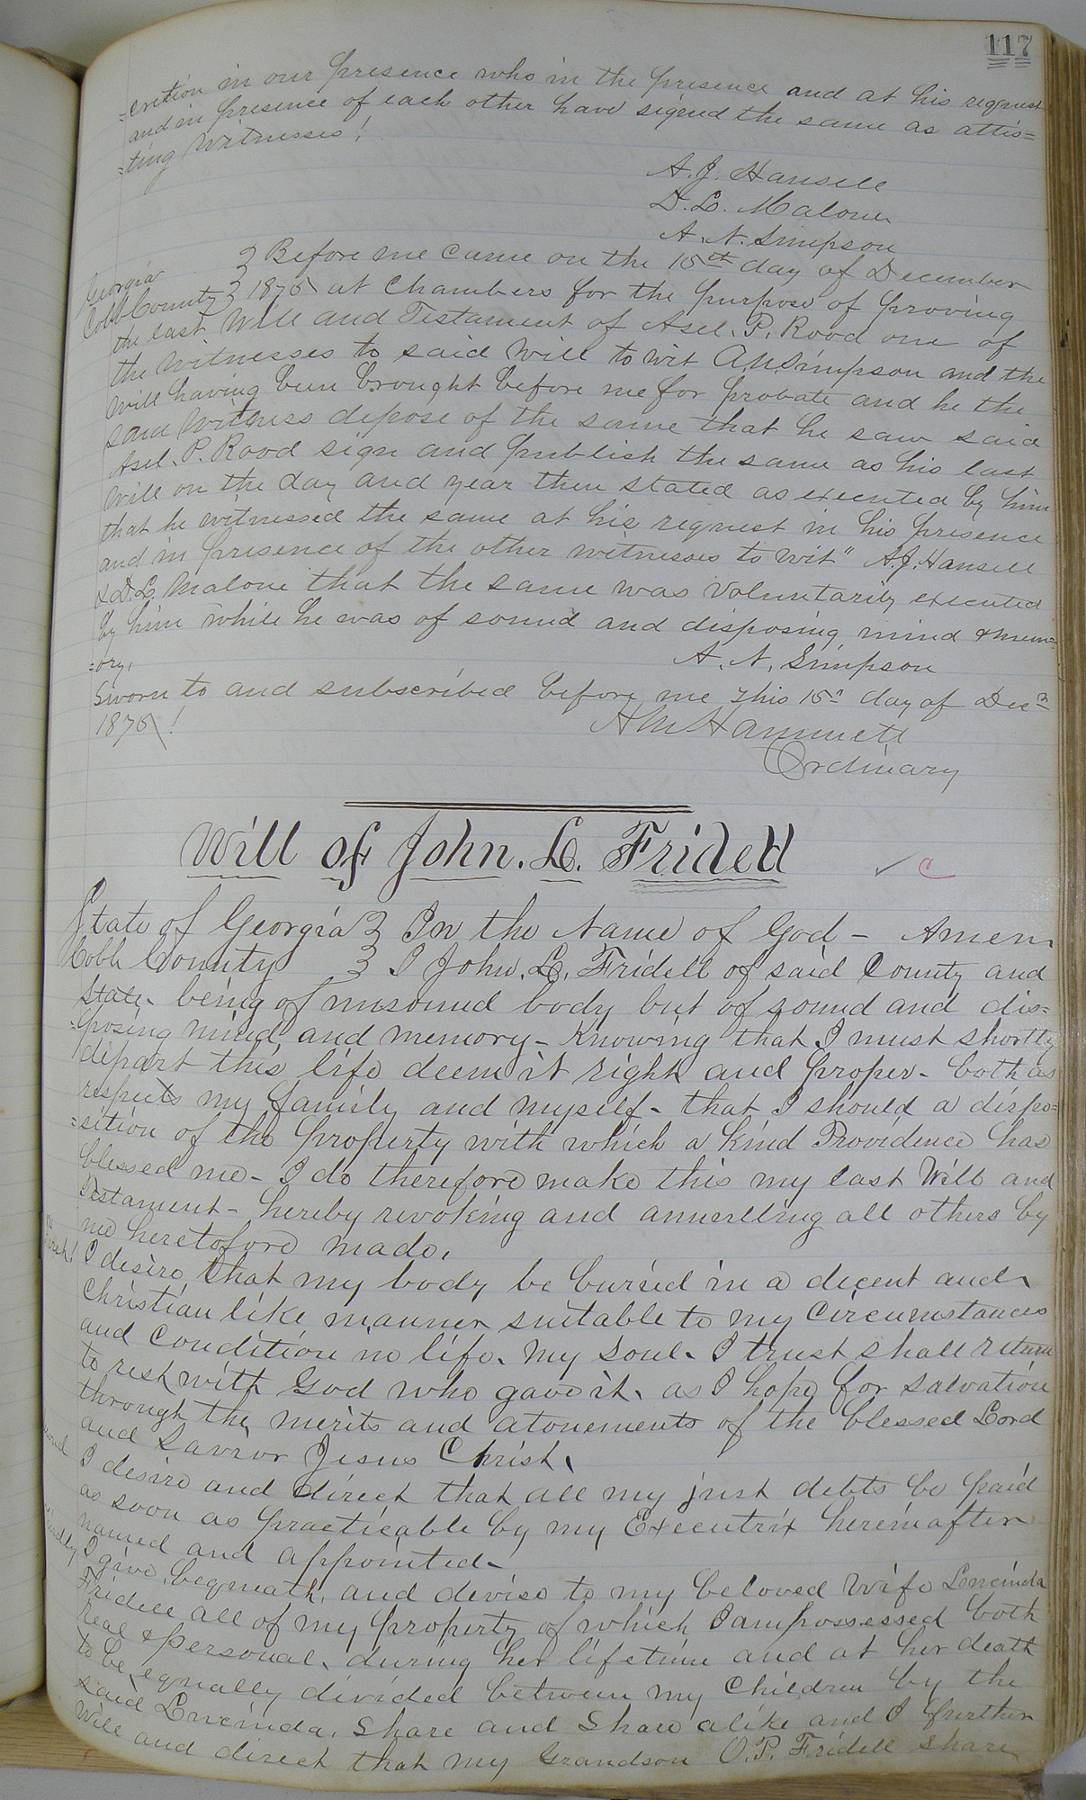 117
=cution in our presence who in the presence and at his request
and in presence of each other have sigend the same as attes=
=ting Witnesses!
A. J. Hansell
D. L. Malone
A. N. Simpson
Georgia } Before me came on the 15th day of December
Cobb County } 1875 at Chambers for the purpose of proving
the last Will and Testament of Asel. P. Rood one of
the Witnesses to said Will to wit A.N. Simpson and the
Will having been brought before me for probate and he the
said Witness depose of the same that he saw said
Asel. P. Rood sign and publish the same as his last
Will on the day and year then stated as executed by him
that he witnessed the same at his request in his presence
and in presence of the other witnesses to wit" A. J. Hansell
& D. L. Malone that the same was Voluntarily executed
by him while he was of sound and disposing mind & mem=
=ory.
A. N. Simpson
Sworn to and subscribed before me this 15th day of Dec
1875!
H M Hammett
Ordinary
Will of John. L. Fridell
✓ C
State of Georgia } In the Name of God - Amen
Cobb County } I John. L. Fridell of said County and
State being of unsound body but of sound and dis=
=posing mind and memory - Knowing that I must shortly
depart this life deem it right and proper - both as
respects my family and myself - that I should a dispo=
=sition of the property with which a kind Providence has
blessed me - I do therefore make this my last Will and
Testament - hereby revoking and annulling all others by
me heretofore made.
I desire that my body be buried in a decent and
Christian like manner suitable to my Circumstances
and Condition no life. My Soul I trust shall return
to rest with God who gave it. as I hope for salvation
through the merits and atonements of the blessed Lord
and Savior Jesus Christ.
I desire and direct that all my just debts be paid
as soon as practicable by my Executrix hereinafter
named and appointed -
I give, bequeath, and devise to my beloved Wife Lucinda
Fridell all of my property of which I am possessed both
real & personal, during her lifetime and at her death
to be equally divided between my Children by the
said Lucinda. Share and Share alike and I further
Will and direct that my Grandson O. P. Fridell share